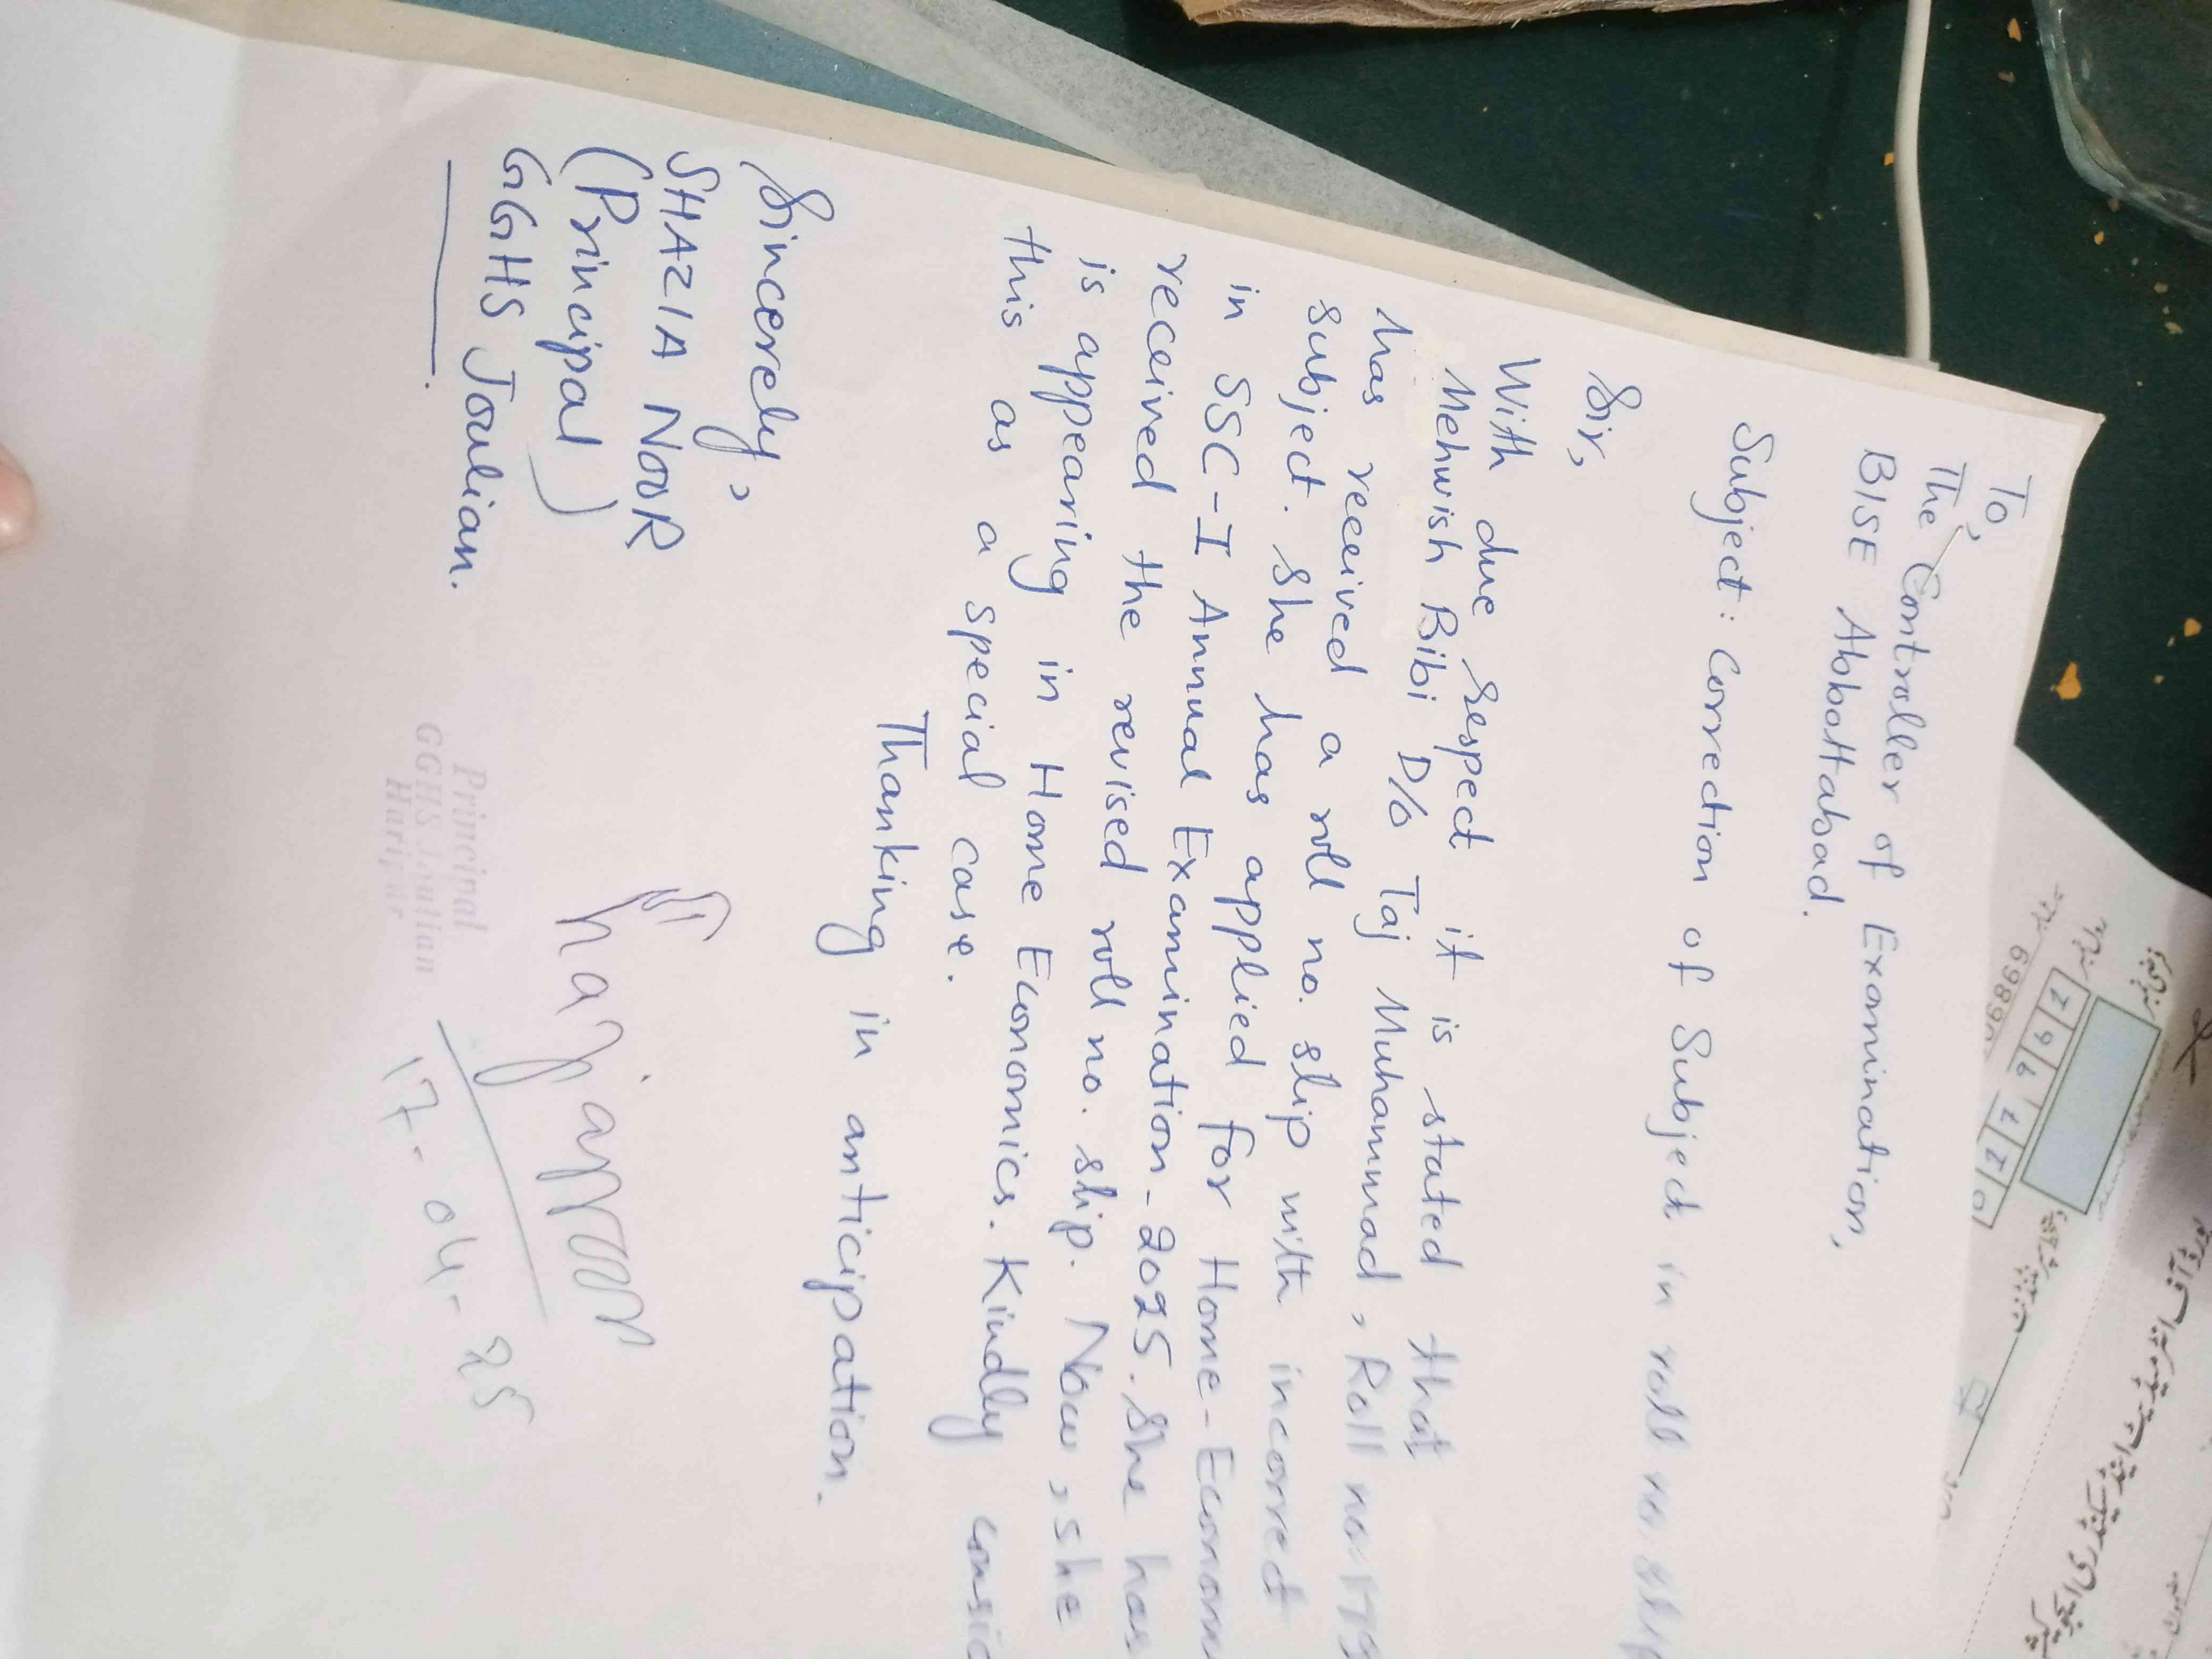 To,
The Controller of Examination,
BISE Abbottabad.
Subject: Correction of Subject in roll no. slip
Sir,
With due Respect it is stated that
Mehwish Bibi D/o Taj Muhammad, Roll no.
has received a roll no. slip with incorrect
subject. She has applied for Home-Econom
in SSC-I Annual Examination-2025. She has
received the revised roll no. slip. Now, she
is appearing in Home Economics. Kindly consid
this as a special case.
Thanking in anticipation.
Sincerely,
SHAZIA NOOR
(Principal)
GGHS Joulian.
17-04-25
Principal
GGHS Joulian
Haripur
06869